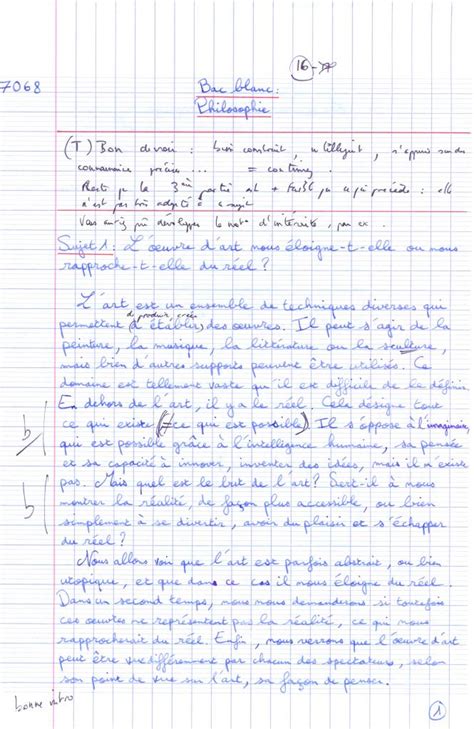 16
7068
Bac blanc :
Philosophie
(T) Bon devoir : bien construit, intelligent, s'appuie sur des
connaissances précises ... = continuez.
Reste que la 3ème partie est + faible que ce qui précède : elle
n'est pas très adaptée au sujet
Vous auriez pu développer la not° d'intériorité, par ex.
Sujet 1 : L'œuvre d'art nous éloigne-t-elle ou nous
rapproche-t-elle du réel ?
L'art est un ensemble de techniques diverses qui
de produire, créer
permettent d'établir des œuvres. Il peut s'agir de la
peinture, la musique, la littérature ou la sculture,
mais bien d'autres supports peuvent être utilisés. Ce
domaine est tellement vaste qu'il est difficile de le définir.
En dehors de l'art, il y a le réel. Cela désigne tout
ce qui existe (≠ ce qui est possible). Il s'oppose à l'imaginaire,
qui est possible grâce à l'intelligence humaine, sa pensée
b/ et sa capacité à innover, inventer des idées, mais il n'existe
pas. Mais quel est le but de l'art ? Sert-il à nous
b montrer la réalité, de façon plus accessible, ou bien
simplement à se divertir, avoir du plaisir et s'échapper
du réel ?
Nous allons voir que l'art est parfois abstrait, ou bien
utopique, et que dans ce cas il nous éloigne du réel.
Dans un second temps, nous nous demanderons si toutefois
ces œuvres ne représentent pas la réalité, ce qui nous
rapprocherait du réel. Enfin, nous verrons que l'œuvre d'art
peut être vue différemment par chacun des spectateurs, selon
son point de vue sur l'art, sa façon de penser.
bonne intro
1